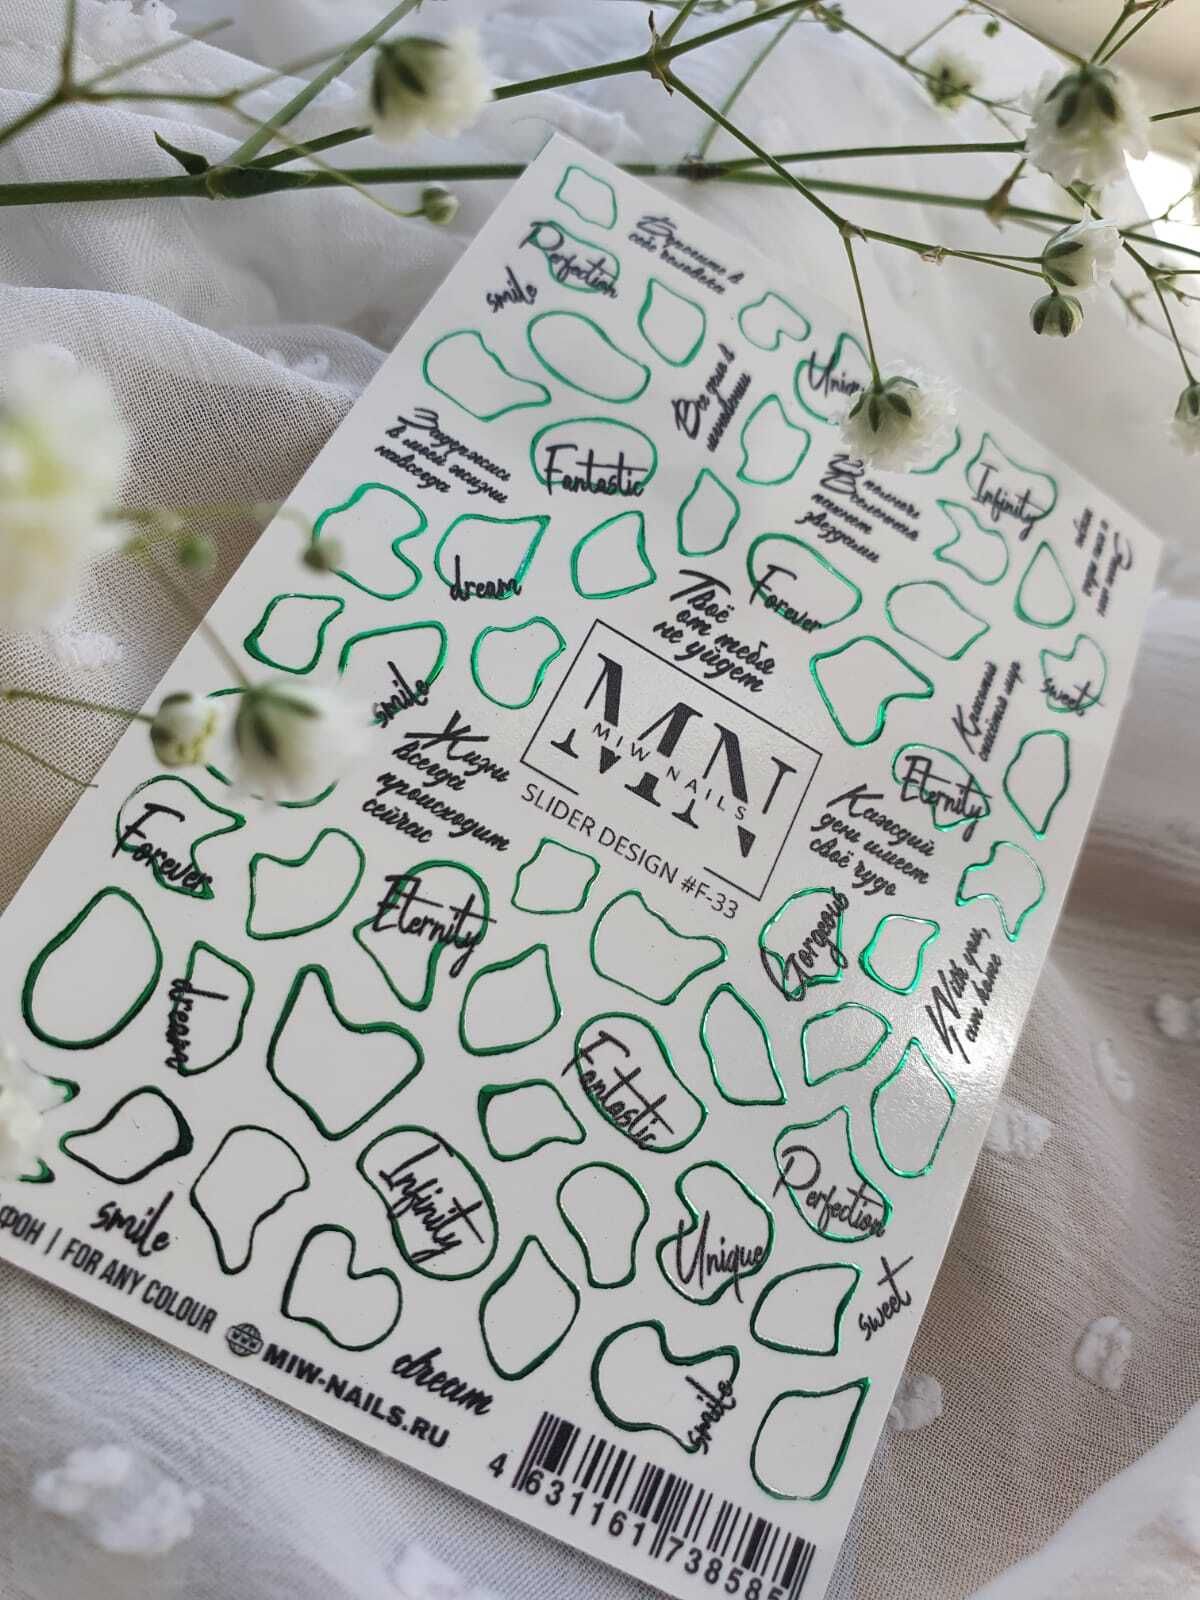 Perfection
smile
Влюбить в
себя человека
Все дело в
мгновении
Задержись
в моей жизни
навсегда
Fantastic
Вселенная
пахнет
звездами
Infinity
dream
Твоё
от тебя
не уйдет
Forever
sweet
smile
MN
MIW NAILS
SLIDER DESIGN #F-33
Жизнь
всегда
происходит
сейчас
Eternity
Каждый
день имеет
своё чудо
Forever
Eternity
Gorgeous
With you,
I am home
dream
Fantastic
Perfection
Infinity
Unique
smile
sweet
ФОН | FOR ANY COLOUR
MIW-NAILS.RU
dream
smile
4 631161 738585